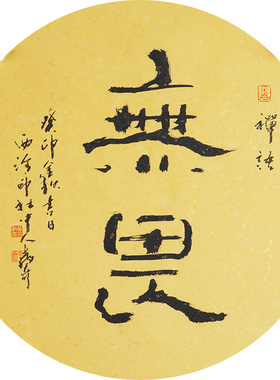 禪語
無畏
癸卯金秋吉日
西泠印社中人